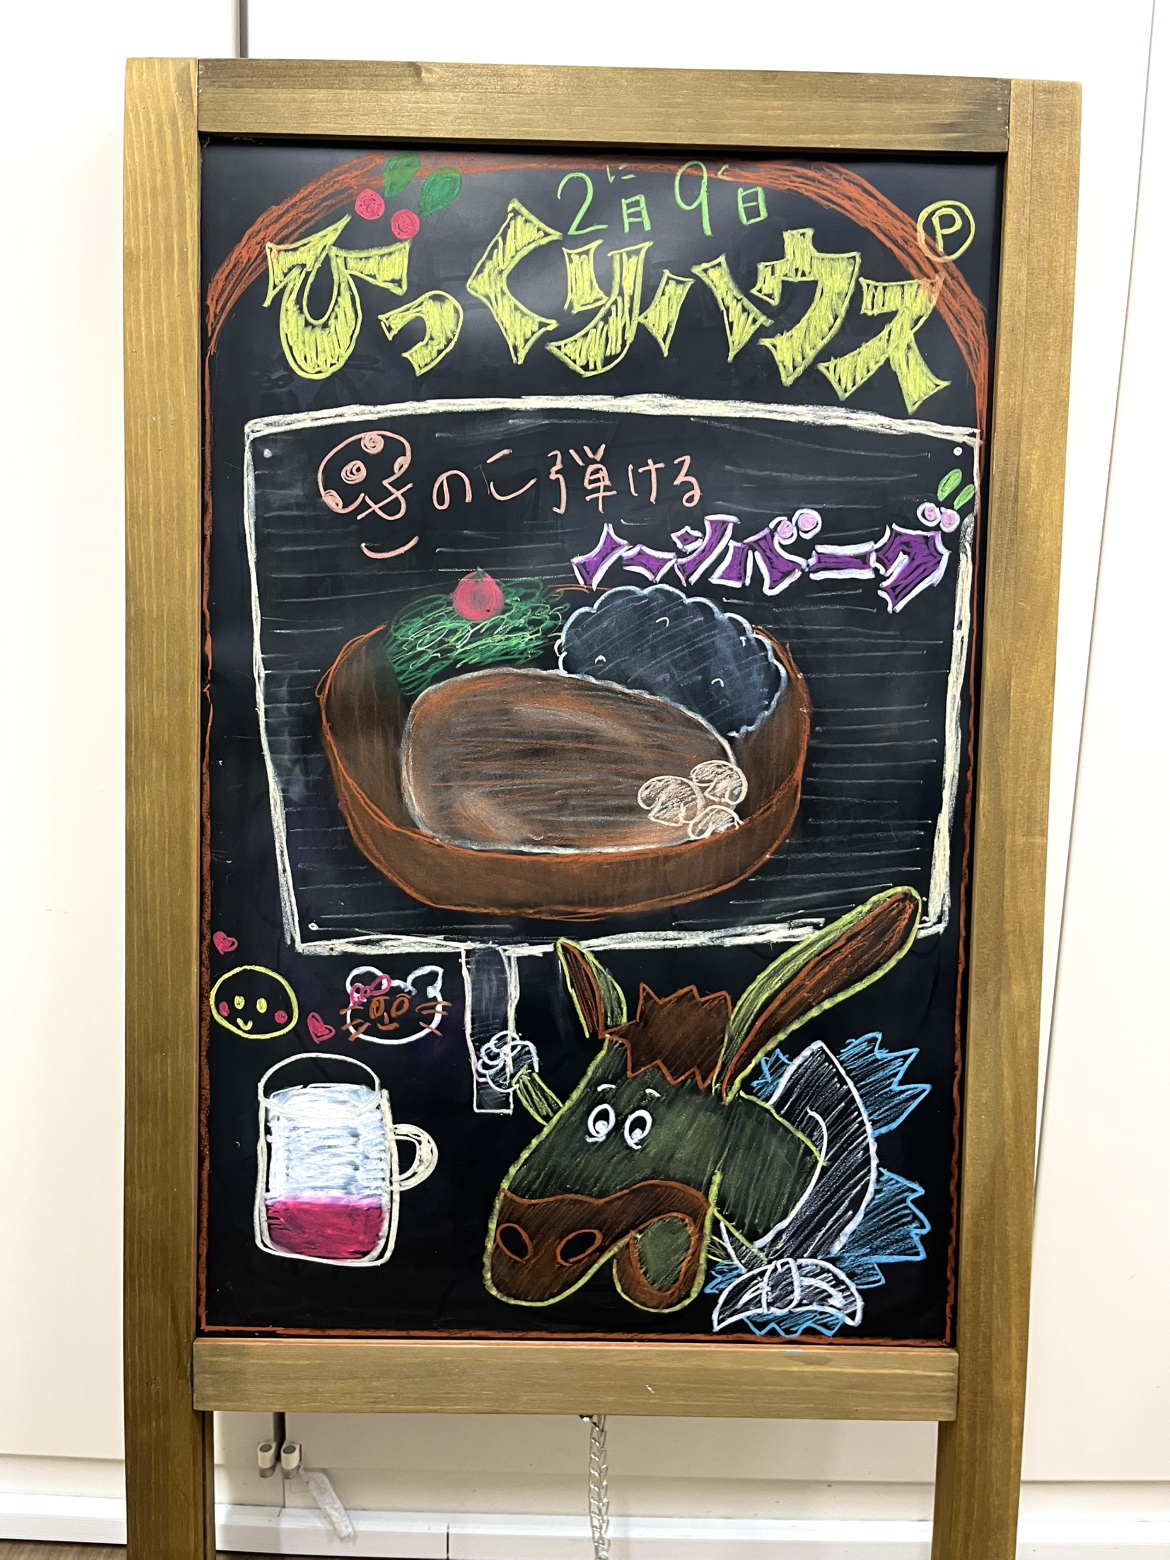 に く
2月9日
Ⓟ
びっくりハウス
きのこ弾ける
ハンバーグ